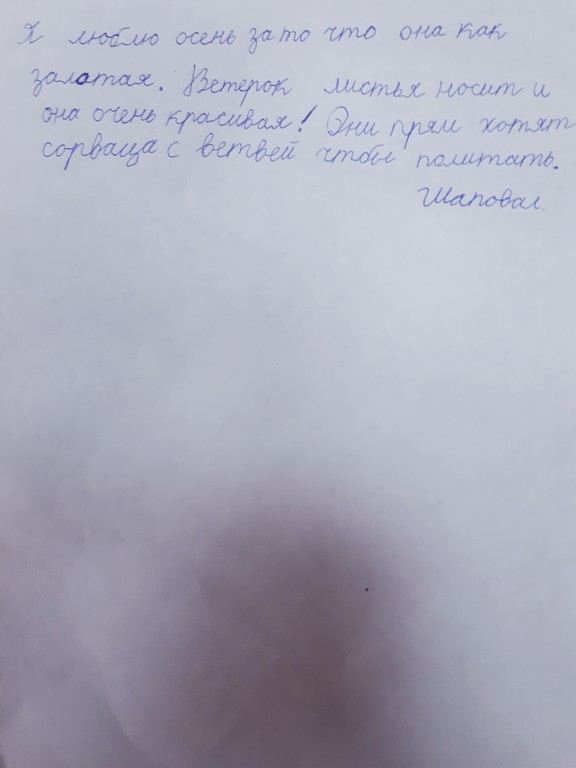 Я люблю осень зато что она как
залотая. Ветерок листья носит и
она очень красивая! Они прям хотят
сорваца с ветвей чтобы политать.
Шаповал.